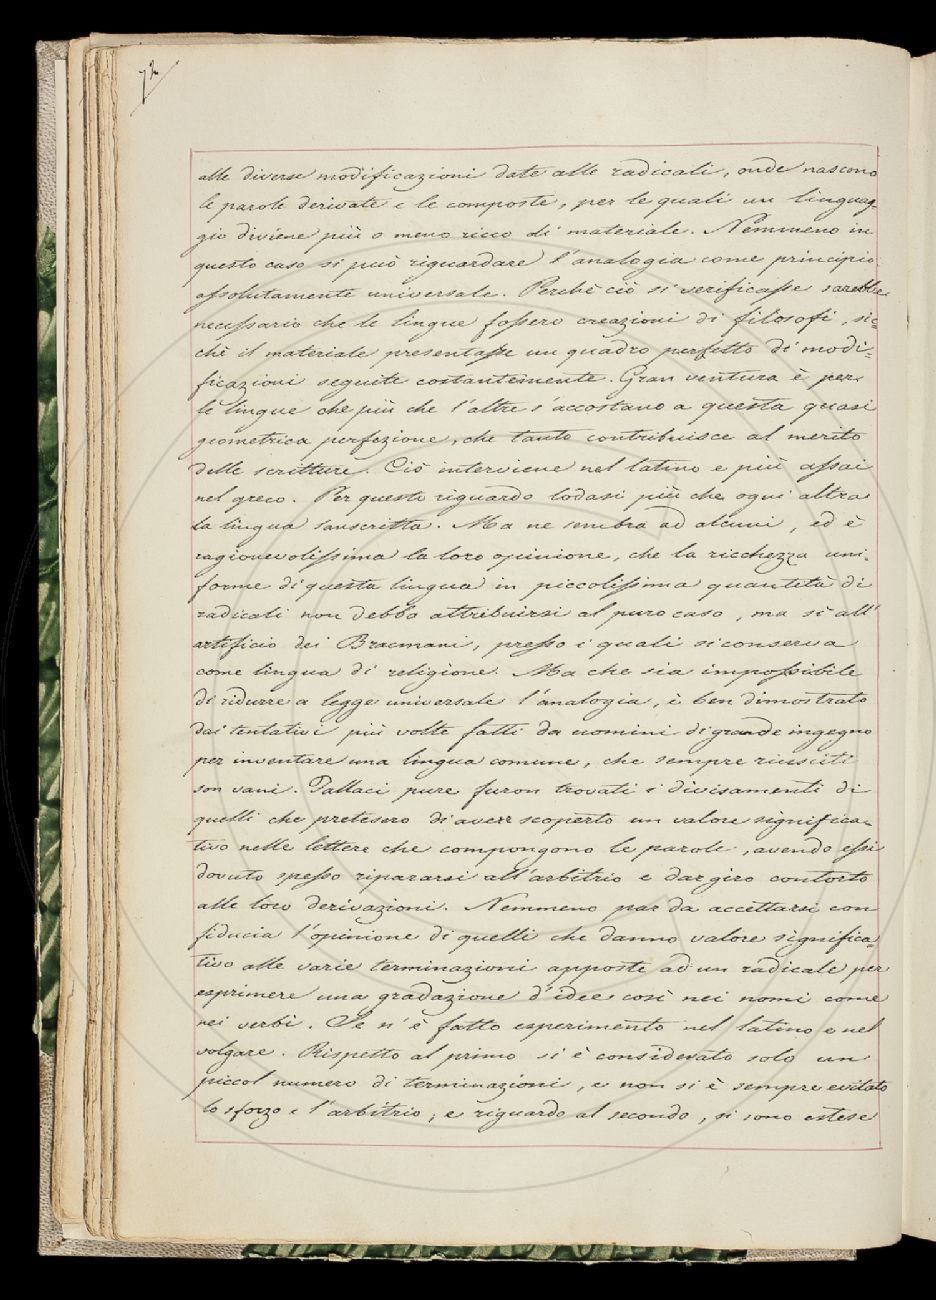 72
alle diverse modificazioni date alle radicali, onde nascono
le parole derivate e le composte, per le quali un linguag=
gio diviene più o meno ricco di materiale. Nemmeno in
questo caso si può riguardare l'analogia come principio
assolutamente universale. Perchè ciò si verificasse sarebbe
necessario che le lingue fossero creazioni di filosofi, sic=
chè il materiale presentasse un quadro perfetto di modi=
ficazioni seguite costantemente. Gran ventura è per
le lingue che più che l'altre s'accostano a questa quasi
geometrica perfezione, che tanto contribuisce al merito
delle scritture. Ciò interviene nel latino e più assai
nel greco. Per questo riguardo lodasi più che ogni altra
la lingua sanscritta. Ma ne sembra ad alcuni, ed è
ragionevolissima la loro opinione, che la ricchezza uni=
forme di questa lingua in piccolissima quantità di
radicali non debba attribuirsi al puro caso, ma sì all'
artificio dei Bracmani, presso i quali si conserva
come lingua di religione. Ma che sia impossibile
di ridurre a legge universale l'analogia, è ben dimostrato
dai tentativi più volte fatti da uomini di grande ingegno
per inventare una lingua comune, che sempre riusciti
son vani. Fallaci pure furon trovati i divisamenti di
quelli che pretesero di aver scoperto un valore significa=
tivo nelle lettere che compongono le parole, avendo essi
dovuto spesso ripararsi all'arbitrio e dar giro contorto
alle loro derivazioni. Nemmeno par da accettarsi con
fiducia l'opinione di quelli che danno valore significa=
tivo alle varie terminazioni apposte ad un radicale per
esprimere una gradazione d'idee così nei nomi come
nei verbi. Se n'è fatto esperimento nel latino e nel
volgare. Rispetto al primo si è considerato solo un
piccol numero di terminazioni, e non si è sempre evitato
lo sforzo e l'arbitrio; e riguardo al secondo, si sono estese